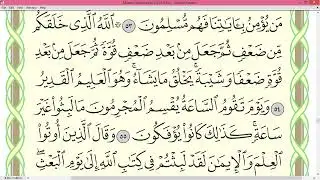 مَن يُؤْمِنُ بِـَٔايَـٰتِنَا فَهُم مُّسْلِمُونَ ٥٣ ۞ ٱللَّهُ ٱلَّذِى خَلَقَكُم
مِّن ضَعْفٍ ثُمَّ جَعَلَ مِنۢ بَعْدِ ضَعْفٍ قُوَّةً ثُمَّ جَعَلَ مِنۢ بَعْدِ
قُوَّةٍ ضَعْفًا وَشَيْبَةً ۚ يَخْلُقُ مَا يَشَآءُ ۖ وَهُوَ ٱلْعَلِيمُ ٱلْقَدِيرُ
٥٤ وَيَوْمَ تَقُومُ ٱلسَّاعَةُ يُقْسِمُ ٱلْمُجْرِمُونَ مَا لَبِثُوا۟ غَيْرَ
سَاعَةٍ ۚ كَذَٰلِكَ كَانُوا۟ يُؤْفَكُونَ ٥٥ وَقَالَ ٱلَّذِينَ أُوتُوا۟
ٱلْعِلْمَ وَٱلْإِيمَـٰنَ لَقَدْ لَبِثْتُمْ فِى كِتَـٰبِ ٱللَّهِ إِلَىٰ يَوْمِ ٱلْبَعْثِ ۖ